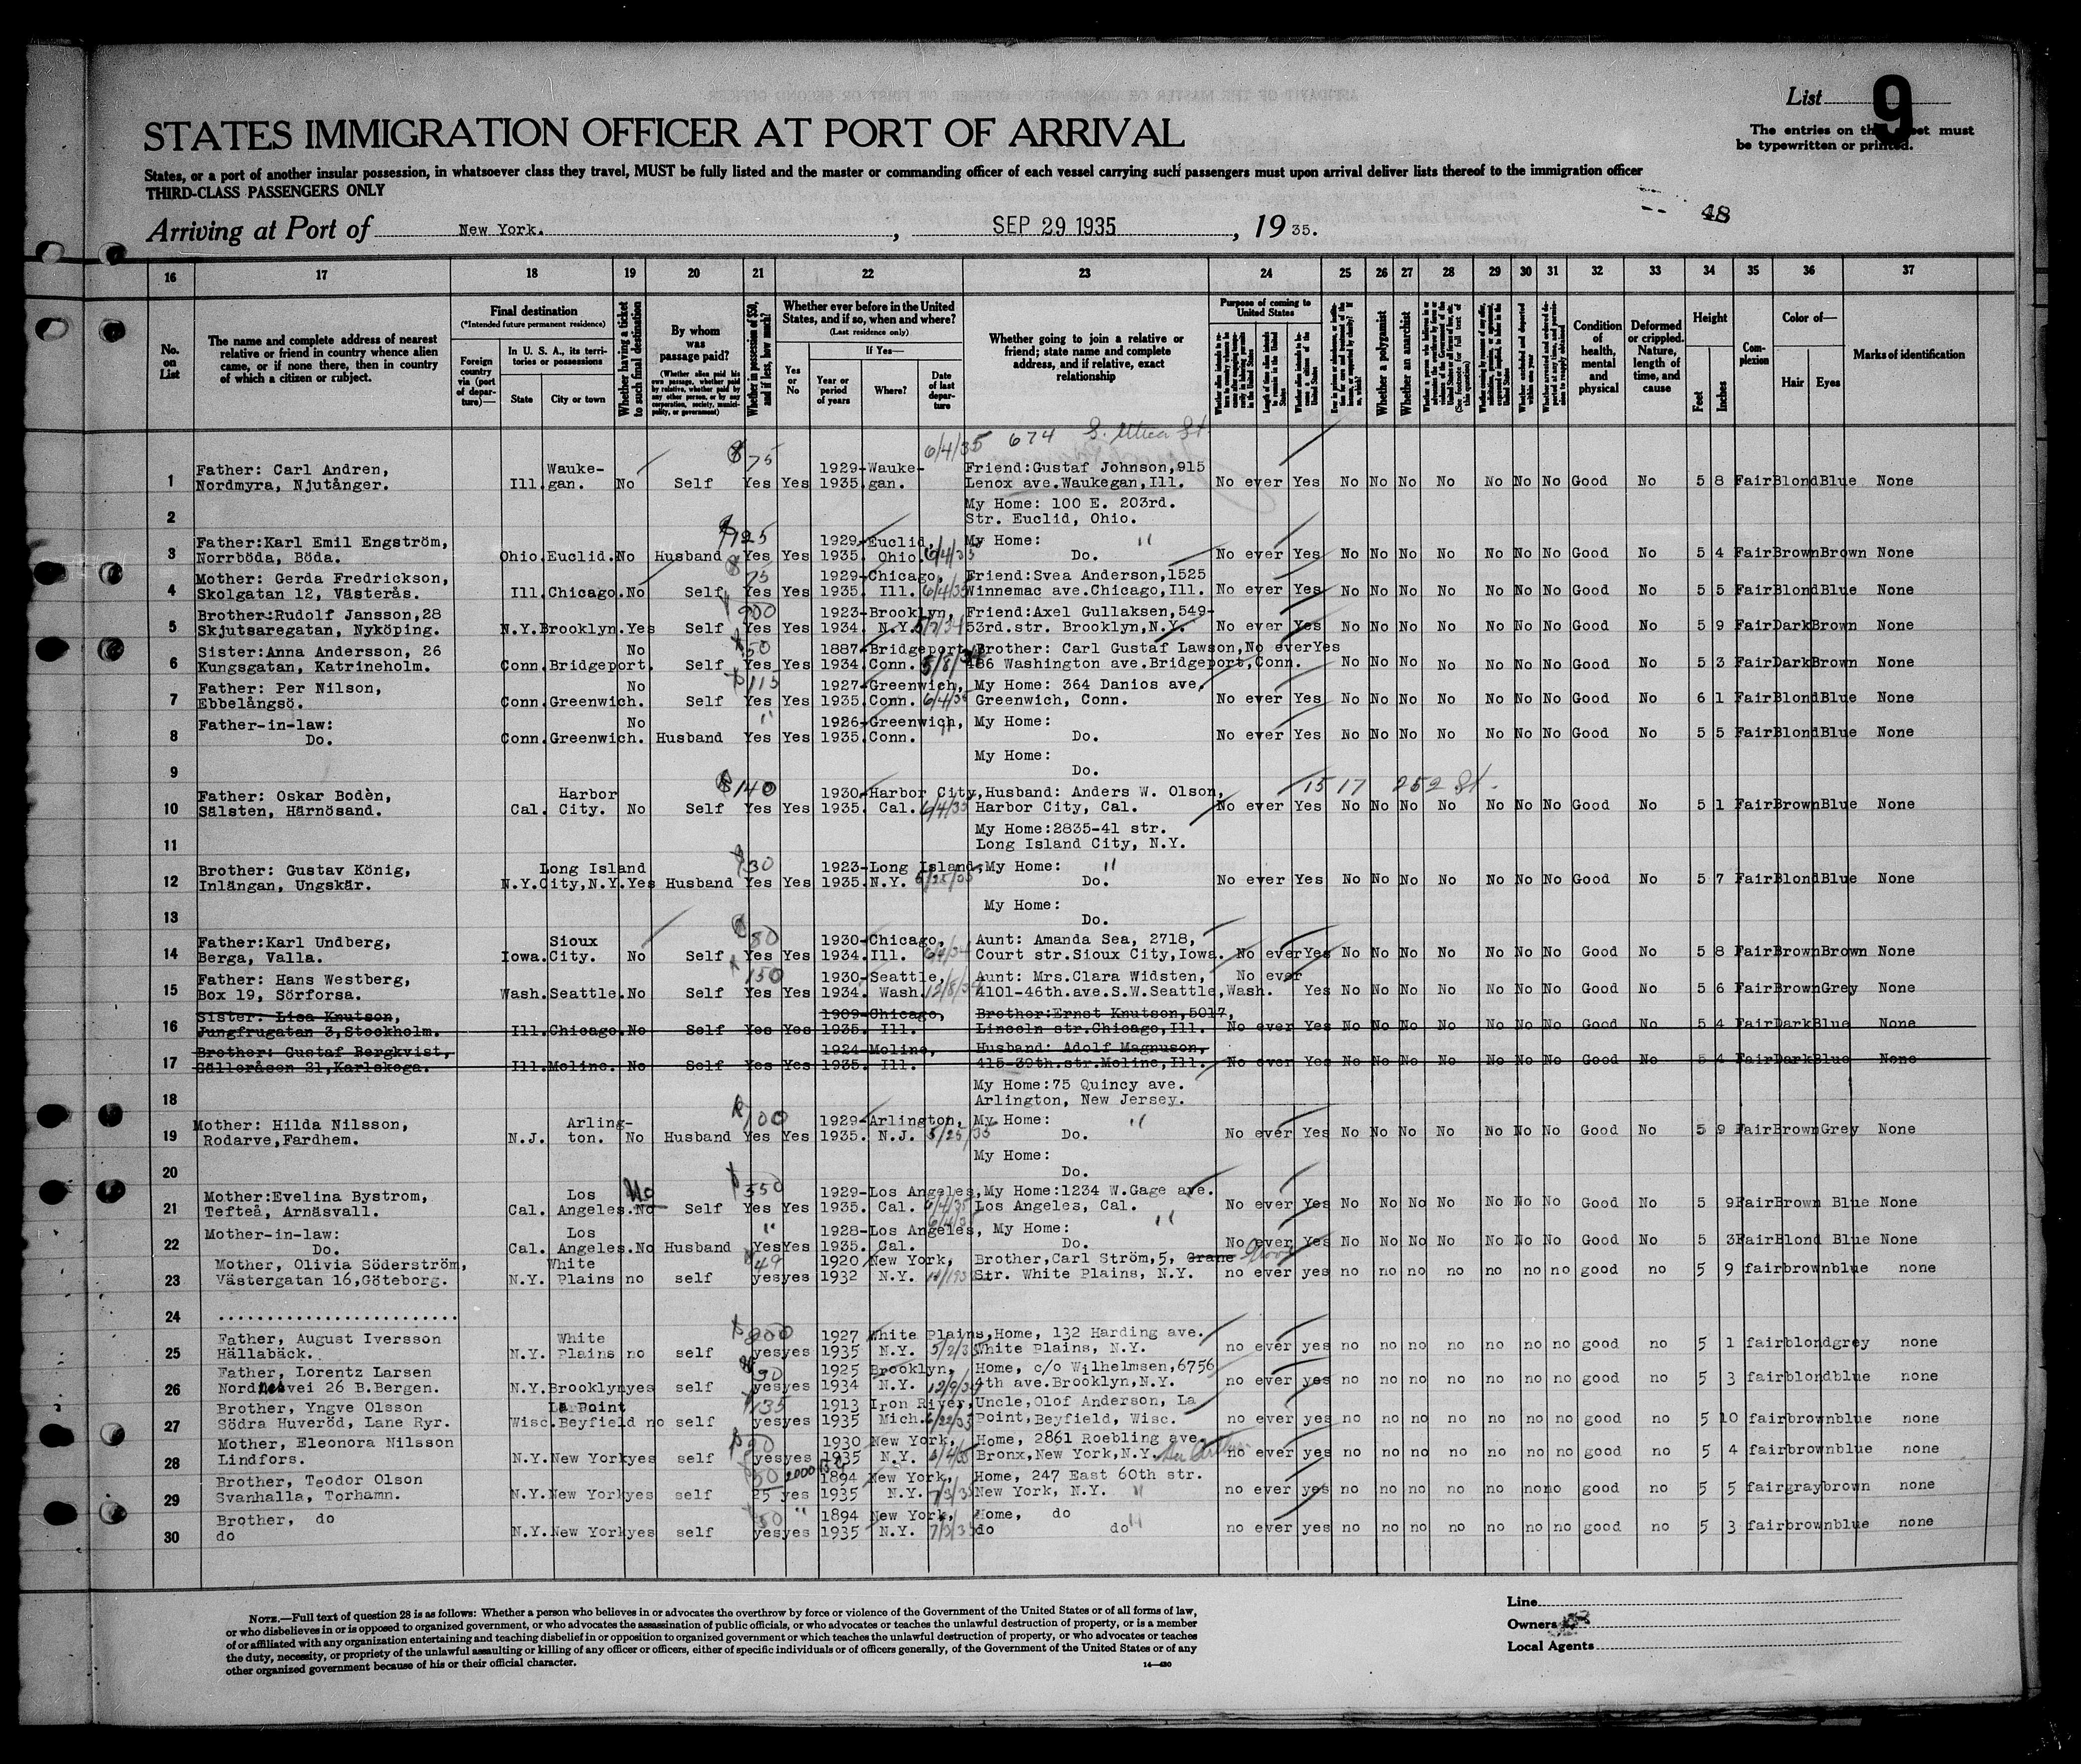 List 9
STATES IMMIGRATION OFFICER AT PORT OF ARRIVAL
The entries on this sheet must
be typewritten or printed.
States, or a port of another insular possession, in whatsoever class they travel, MUST be fully listed and the master or commanding officer of each vessel carrying such passengers must upon arrival deliver lists thereof to the immigration officer
THIRD-CLASS PASSENGERS ONLY
48
Arriving at Port of New York. , SEP 29 1935 , 19 35.
16 17 18 19 20 21 22 23 24 25 26 27 28 29 30 31 32 33 34 35 36 37
No. on List
The name and complete address of nearest relative or friend in country whence alien came, or if none there, then in country of which a citizen or subject.
Final destination
(*Intended future permanent residence)
Foreign country via (port of departure)—
In U. S. A., its territories or possessions
State
City or town
Whether having a ticket to such final destination
By whom was passage paid?
(Whether alien paid his own passage, whether paid by relative, whether paid by any other person, or by any corporation, society, municipality, or government)
Whether in possession of $50, and if less, how much?
Whether ever before in the United States, and if so, when and where?
(Last residence only)
Yes or No
If Yes—
Year or period of years
Where?
Date of last departure
Whether going to join a relative or friend; state name and complete address, and if relative, exact relationship
Purpose of coming to United States
Whether a polygamist
Whether an anarchist
Condition of health, mental and physical
Deformed or crippled. Nature, length of time, and cause
Height
Feet
Inches
Complexion
Color of—
Hair
Eyes
Marks of identification
6/4/35 674 S. Utica St.
$75
1 Father: Carl Andren, Nordmyra, Njutånger. Ill. Waukegan. No Self Yes Yes 1929-1935. Waukegan. Friend:Gustaf Johnson,915 Lenox ave.Waukegan,Ill. No ever Yes No No No No No No No Good No 5 8 Fair Blond Blue None
2 My Home: 100 E. 203rd. Str. Euclid, Ohio.
3 Father:Karl Emil Engström, Norrböda, Böda. Ohio. Euclid. No Husband $125 Yes Yes 1929-1935. Euclid, Ohio. 6/4/35 My Home: " Do. No ever Yes No No No No No No No Good No 5 4 Fair Brown Brown None
4 Mother: Gerda Fredrickson, Skolgatan 12, Västerås. Ill. Chicago. No Self $75 Yes Yes 1929-1935. Chicago, Ill. 6/4/35 Friend:Svea Anderson,1525 Winnemac ave.Chicago,Ill. No ever Yes No No No No No No No Good No 5 5 Fair Blond Blue None
5 Brother:Rudolf Jansson,28 Skjutsaregatan, Nyköping. N.Y. Brooklyn. Yes Self Yes Yes 1923-1934. Brooklyn, N.Y. Friend:Axel Gullaksen,549-53rd.str. Brooklyn,N.Y. No ever Yes No No No No No No No Good No 5 9 Fair Dark Brown None
6 Sister:Anna Andersson, 26 Kungsgatan, Katrineholm. Conn. Bridgeport. No Self 50 Yes Yes 1887-1934. Bridgeport, Conn. 5/8/34 Brother: Carl Gustaf Lawson, 486 Washington ave.Bridgeport,Conn. No ever Yes No No No No No No No Good No 5 3 Fair Dark Brown None
7 Father: Per Nilson, Ebbelångsö. Conn. Greenwich. No Self $115 Yes Yes 1927-1935. Greenwich, Conn. 6/4/35 My Home: 364 Danios ave. Greenwich, Conn. No ever Yes No No No No No No No Good No 6 1 Fair Blond Blue None
8 Father-in-law: Do. Conn. Greenwich. No Husband " Yes Yes 1926-1935. Greenwich, Conn. " My Home: Do. No ever Yes No No No No No No No Good No 5 5 Fair Blond Blue None
9 My Home: Do.
10 Father: Oskar Bodèn, Sälsten, Härnösand. Cal. Harbor City. No Self $140 Yes Yes 1930-1935. Harbor City, Cal. 6/4/35 Husband: Anders W. Olson, Harbor City, Cal. 1517 252 St. No ever Yes No No No No No No No Good No 5 1 Fair Brown Blue None
11 My Home:2835-41 str. Long Island City, N.Y.
12 Brother: Gustav König, Inlängan, Ungskär. N.Y. Long Island City,N.Y. Yes Husband $30 Yes Yes 1923-1935. Long Island, N.Y. 6/25/35 My Home: " Do. No ever Yes No No No No No No No Good No 5 7 Fair Blond Blue None
13 My Home: Do.
14 Father:Karl Undberg, Berga, Valla. Iowa. Sioux City. No Self $80 Yes Yes 1930-1934. Chicago, Ill. Aunt: Amanda Sea, 2718, Court str.Sioux City,Iowa. No ever Yes No No No No No No No Good No 5 8 Fair Brown Brown None
15 Father: Hans Westberg, Box 19, Sörforsa. Wash. Seattle. No Self 150 Yes Yes 1930-1934. Seattle, Wash. 12/8/34 Aunt: Mrs.Clara Widsten, 4101-46th.ave.S.W.Seattle,Wash. No ever Yes No No No No No No No Good No 5 6 Fair Brown Grey None
16 Sister: Lisa Knutson, Jungfrugatan 3,Stockholm. Ill. Chicago. No Self Yes Yes 1909-1935. Chicago, Ill. Brother:Ernst Knutson,5017, Lincoln str.Chicago,Ill. No ever Yes No No No No No No No Good No 5 4 Fair Dark Blue None
17 Brother: Gustaf Bergkvist, Gälleråsen 21,Karlskoga. Ill. Moline. No Self Yes Yes 1924-1935. Moline, Ill. Husband: Adolf Magnuson, 415-39th.str.Moline,Ill. No ever Yes No No No No No No No Good No 5 4 Fair Dark Blue None
18 My Home:75 Quincy ave. Arlington, New Jersey.
19 Mother: Hilda Nilsson, Rodarve,Fardhem. N.J. Arlington. No Husband 100 Yes Yes 1929-1935. Arlington, N.J. 5/25/35 My Home: " Do. No ever Yes No No No No No No No Good No 5 9 Fair Brown Grey None
20 My Home: Do.
21 Mother:Evelina Bystrom, Tefteå, Arnäsvall. Cal. Los Angeles. No No Self 550 Yes Yes 1929-1935. Los Angeles, Cal. 6/4/35 My Home:1234 W.Gage ave. Los Angeles, Cal. No ever Yes No No No No No No No Good No 5 9 Fair Brown Blue None
22 Mother-in-law: Do. Cal. Los Angeles. No Husband " Yes Yes 1928-1935. Los Angeles, Cal. 6/4/35 My Home: " Do. No ever Yes No No No No No No No Good No 5 3 Fair Blond Blue None
23 Mother, Olivia Söderström, Västergatan 16,Göteborg. N.Y. White Plains no self 49 yes yes 1920 1932 New York, N.Y. Brother,Carl Ström,5, Grane Str. White Plains, N.Y. no ever yes no no no no no no no good no 5 9 fair brown blue none
24 ........................
25 Father, August Iversson Hällabäck. N.Y. White Plains no self $200 yes yes 1927 1935 White Plains, N.Y. 5/2/35 Home, 132 Harding ave. White Plains, N.Y. no ever yes no no no no no no no good no 5 1 fair blond grey none
26 Father, Lorentz Larsen Nordnesvei 26 B.Bergen. N.Y. Brooklyn yes self 90 yes yes 1925 1934 Brooklyn, N.Y. 12/9/34 Home, c/o Wilhelmsen,6756 4th ave.Brooklyn,N.Y. no ever yes no no no no no no no good no 5 3 fair blond blue none
27 Brother, Yngve Olsson Södra Huveröd, Lane Ryr. Wisc. La Point Beyfield no self 135 yes yes 1913 1935 Iron River, Mich. 6/22/35 Uncle,Olof Anderson, La Point,Beyfield, Wisc. no ever yes no no no no no no no good no 5 10 fair brown blue none
28 Mother, Eleonora Nilsson Lindfors. N.Y. New York yes self yes yes 1930 1935 New York, N.Y. 6/4/35 Home, 2861 Roebling ave. Bronx,New York,N.Y. no ever yes no no no no no no no good no 5 4 fair brown blue none
29 Brother, Teodor Olson Svanhalla, Torhamn. N.Y. New York yes self 50 25 yes 1894 1935 New York, N.Y. 7/3/35 Home, 247 East 60th str. New York, N.Y. " no ever yes no no no no no no no good no 5 5 fair gray brown none
30 Brother, do do N.Y. New York yes self 50 " yes yes 1894 1935 New York, N.Y. 7/3/35 Home, do do do " no ever yes no no no no no no no good no 5 3 fair brown blue none
NOTE.—Full text of question 28 is as follows: Whether a person who believes in or advocates the overthrow by force or violence of the Government of the United States or of all forms of law,
or who disbelieves in or is opposed to organized government, or who advocates the assassination of public officials, or who advocates or teaches the unlawful destruction of property, or is a member
of or affiliated with any organization entertaining and teaching disbelief in or opposition to organized government or which teaches the unlawful destruction of property, or who advocates or teaches
the duty, necessity, or propriety of the unlawful assaulting or killing of any officer or officers, either of specific individuals or of officers generally, of the Government of the United States or of any
other organized government because of his or their official character.
14—430
Line
Owners
Local Agents